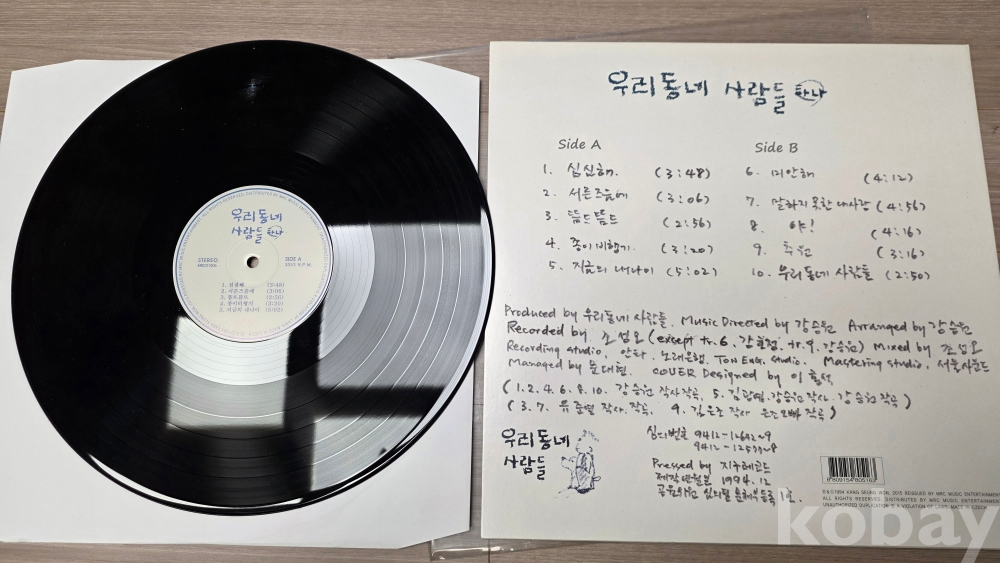 우리동네
사람들 하나
STEREO
SIDE A
1. 심심해 (3:48)
2. 서른즈음에 (3:06)
3. 뜸드뜸드 (2:56)
4. 종이비행기 (3:20)
5. 지금의 내나이 (5:02)
우리동네 사람들 하나
Side A
1. 심심해. (3:48)
2. 서른즈음에 (3:06)
3. 뜸드뜸드 (2:56)
4. 종이비행기. (3:20)
5. 지금의 내나이 (5:02)
Side B
6. 미안해 (4:12)
7. 말하지 못한 내사랑 (4:56)
8. 야! (4:16)
9. 추원 (3:16)
10. 우리동네 사람들 (2:50)
Produced by 우리동네 사람들. Music Directed by 강승원 Arranged by 강승원
Recorded by 조성오 (except tr.6. tr.9. 강승원) Mixed by 조성오
Recording studio, 노래은행. TON ENG. studio. Mastering studio, 서울사운드
Managed by 문대현. COVER Designed by
(1.2.4.6.8.10. 강승원 작사작곡, 5. 강승원 작사. 강승원 작곡)
(3.7. 유준열 작사. 작곡. 9. 작사 작곡)
우리동네
사람들
심의번호 9412-
9412-
Pressed by 지구레코드
제작년월일 1994.12
8809154805163
℗&©1994 KANG SEUNG WON, 2015 REISSUED BY MRC MUSIC ENTERTAINMENT
ALL RIGHTS RESERVED. DISTRIBUTED BY MRC MUSIC ENTERTAINMENT
UNAUTHORIZED DUPLICATION IS A VIOLATION OF LAWS. MADE IN CZECH
kobay